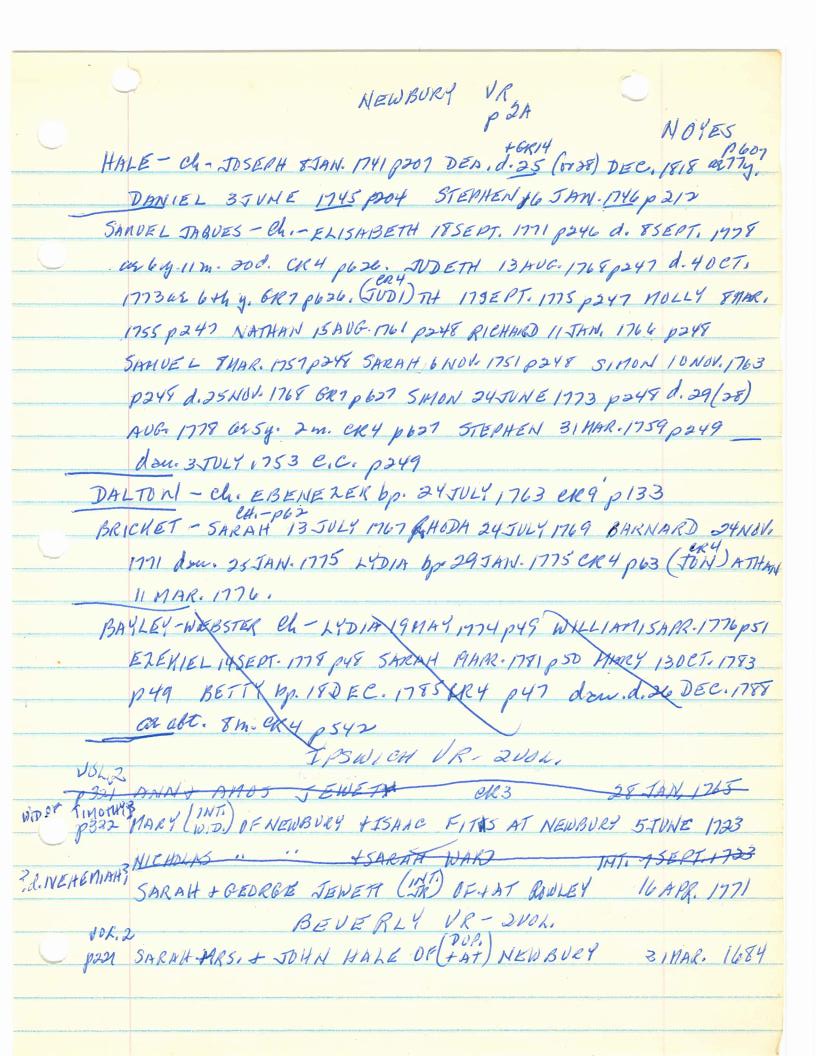 NEWBURY VR
p 2A
NOYES
+GR14 p607
HALE - Ch - JOSEPH 8 JAN. 1741 p207 DEA. d. 25 (or 28) DEC. 1818 ae 77y.
DANIEL 3 JUNE 1745 p204 STEPHEN 16 JAN. 1746 p212
SAMUEL JAQUES - Ch. - ELISABETH 18 SEPT. 1771 p246 d. 8 SEPT. 1778
ae 6y. 11m. 20d. CR4 p626. JUDETH 13 AUG. 1768 p247 d. 4 OCT.
CR4
1773 ae 6th y. GR7 p626. (JUDI)TH 17 SEPT. 1775 p247 MOLLY 8 MAR.
1755 p247 NATHAN 15 AUG. 1761 p248 RICHARD 11 JAN. 1766 p248
SAMUEL 8 MAR. 1757 p248 SARAH 6 NOV. 1751 p248 SIMON 10 NOV. 1763
p248 d. 25 NOV. 1768 GR7 p627 SIMON 24 JUNE 1773 p248 d. 29 (28)
AUG. 1778 ae 5y. 2m. CR4 p627 STEPHEN 31 MAR. 1759 p249 __
dau. 3 JULY 1753 C.C. p249
DALTON - ch. EBENEZER bp. 24 JULY 1763 CR9 p133
CH. - p62
BRICKET - SARAH 13 JULY 1767 RHODA 24 JULY 1769 BARNARD 24 NOV.
1771 dau. 25 JAN. 1775 LYDIA bp 29 JAN. 1775 CR4 p63 (JON)ATHAN
CR4
11 MAR. 1776.
BAYLEY - WEBSTER Ch - LYDIA 19 MAY 1774 p49 WILLIAM 15 APR. 1776 p51
EZEKIEL 14 SEPT. 1778 p48 SARAH 19 MAR. 1781 p50 MARY 13 OCT. 1783
p49 BETTY bp. 18 DEC. 1785 CR4 p47 dau. d. 26 DEC. 1788
ae abt. 8m. CR4 p542
IPSWICH VR - 2 VOL.
VOL. 2
p321 ANN + AMOS JEWETT CR3 28 JAN. 1765
WID OF TIMOTHY?
p322 MARY (INT. WID.) OF NEWBURY + ISAAC FITTS AT NEWBURY 5 JUNE 1723
NICHOLAS " " + SARAH WARD INT. 7 SEPT. 1723
?d. NEHEMIAH?
SARAH + GEORGE JEWETT (INT. JR.) OF + AT ROWLEY 16 APR. 1771
BEVERLY VR - 2 VOL.
VOL. 2
p221 SARAH MRS. + JOHN HALE OF (DUP. + AT) NEWBURY 31 MAR. 1684